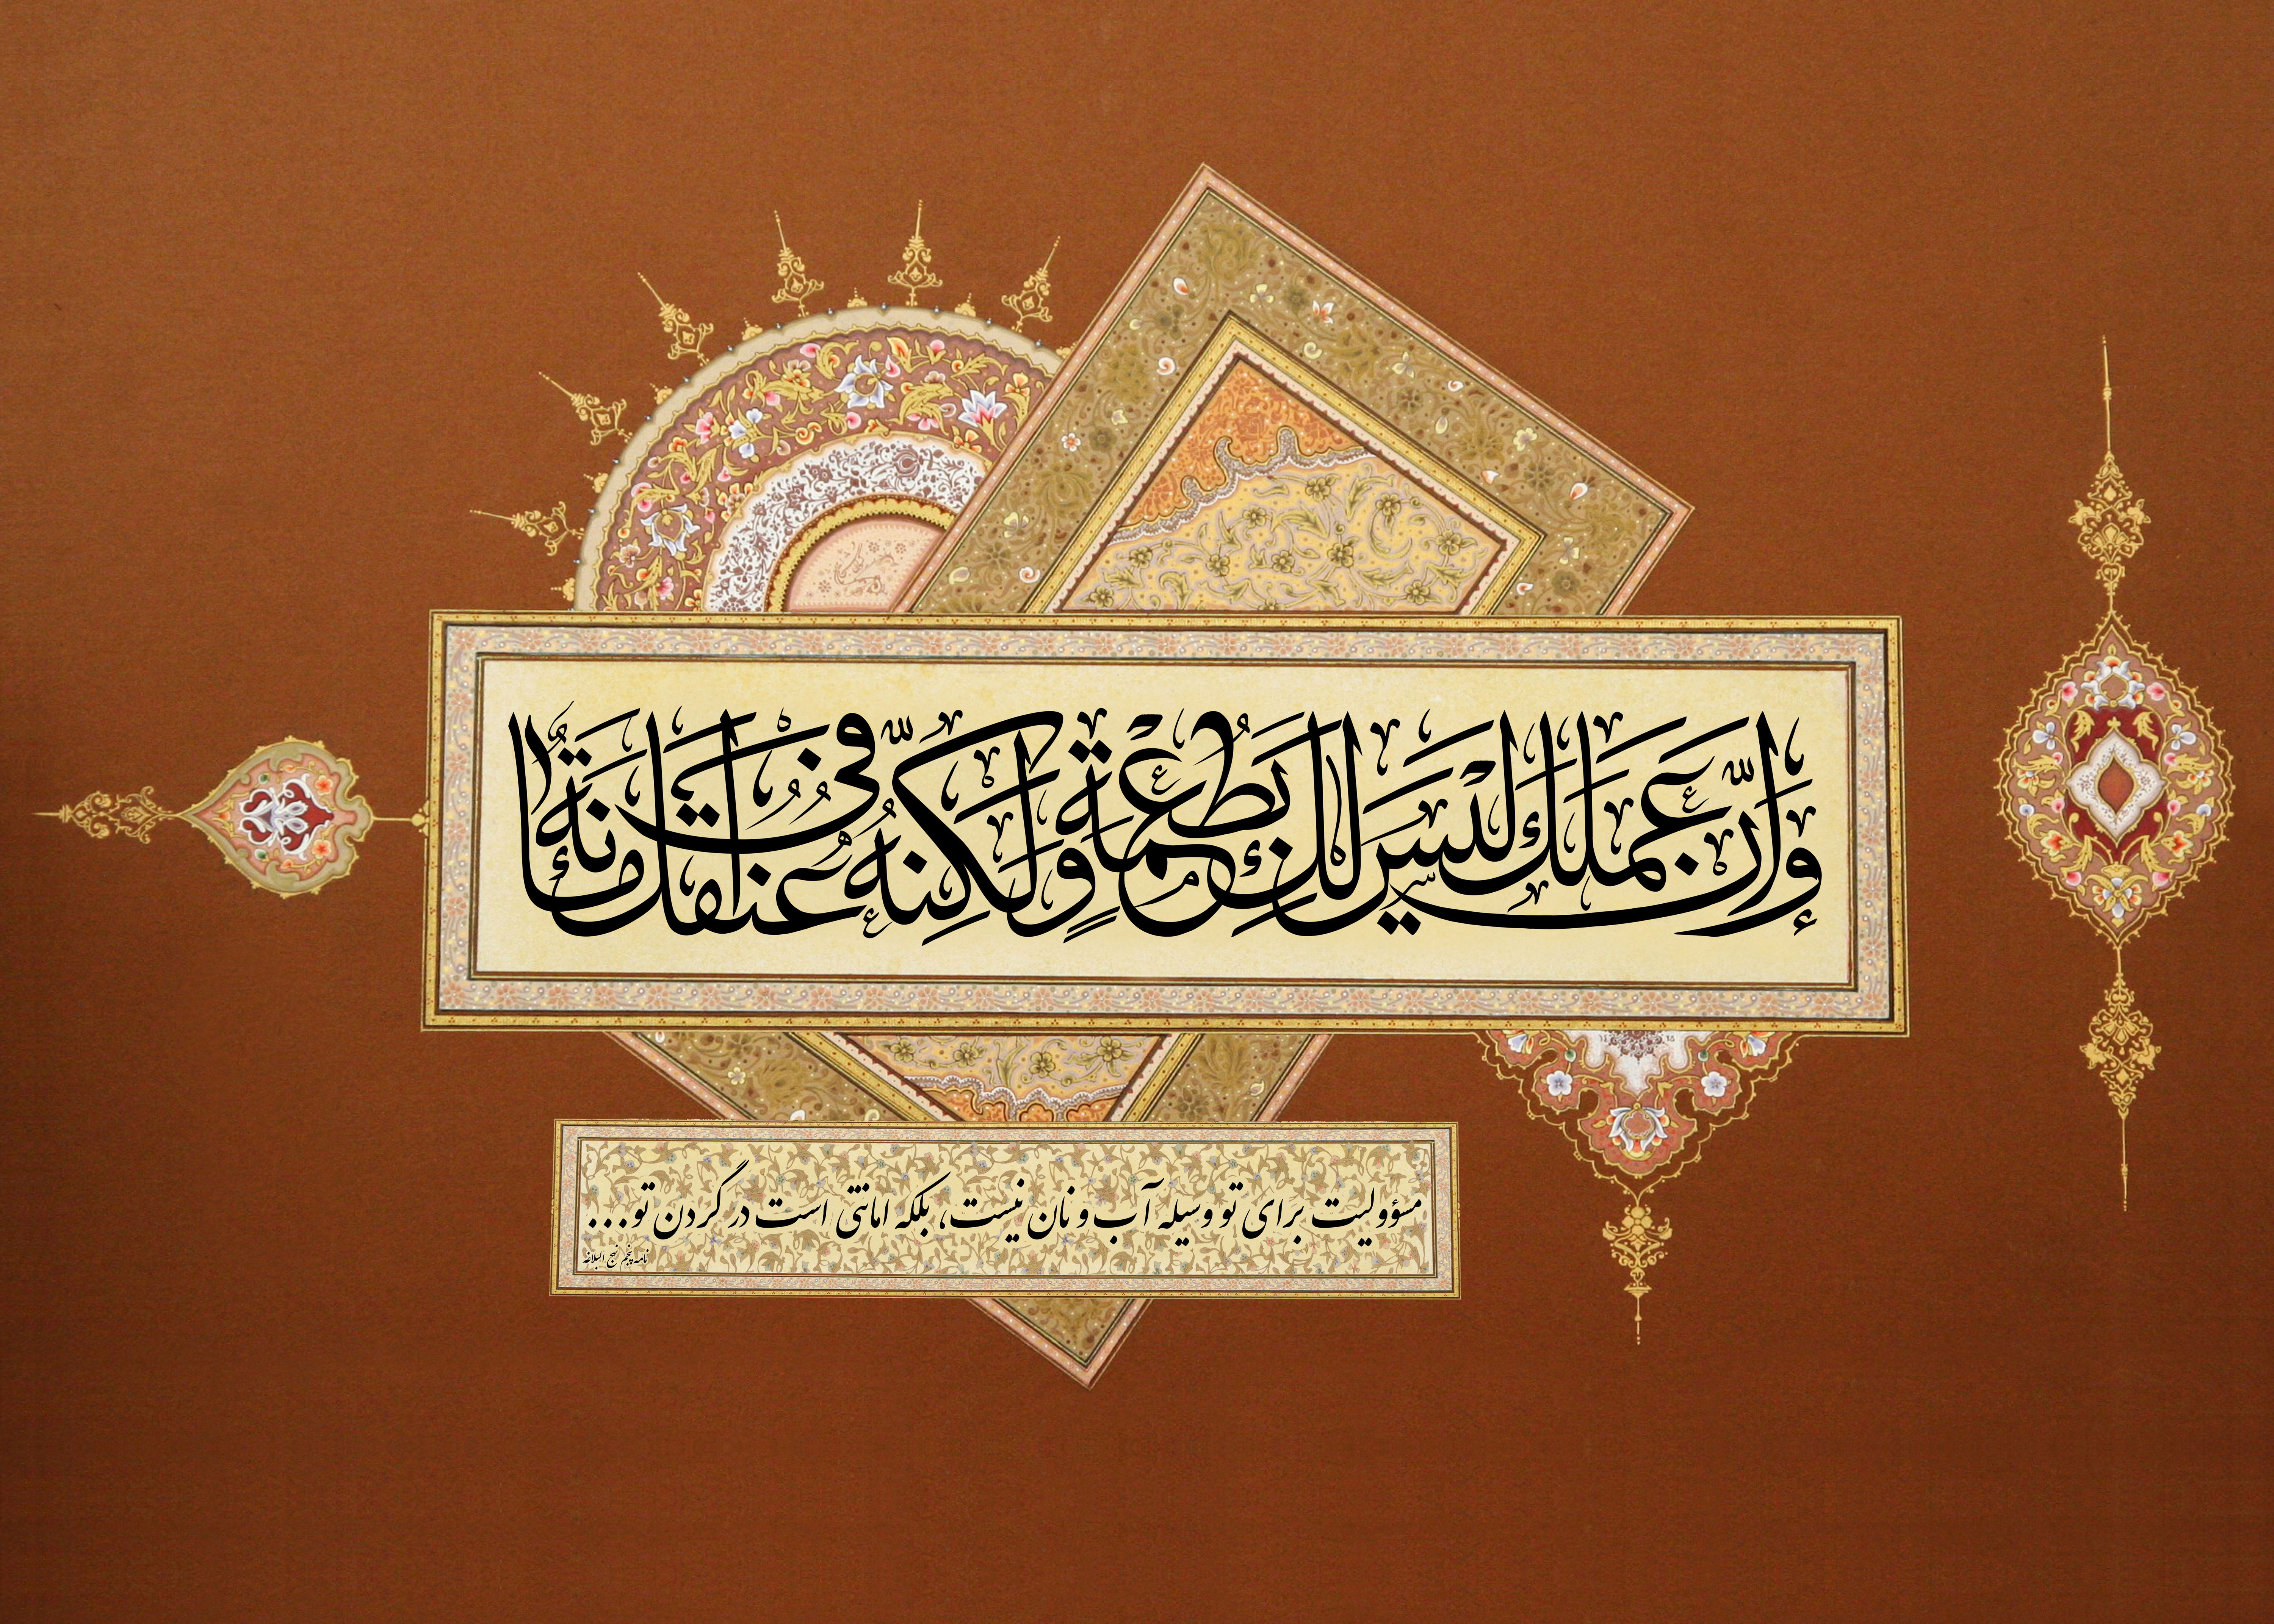 وَإِنَّ عَمَلَكَ لَيْسَ لَكَ بِطُعْمَةٍ وَلَكِنَّهُ فِي عُنُقِكَ أَمَانَةٌ
مسؤولیت برای تو وسیله آب و نان نیست، بلکه امانتی است در گردن تو...
نامه پنجم نهج البلاغه